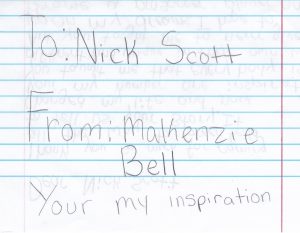 To: Nick Scott
From: Malkenzie
Bell
Your my inspiration